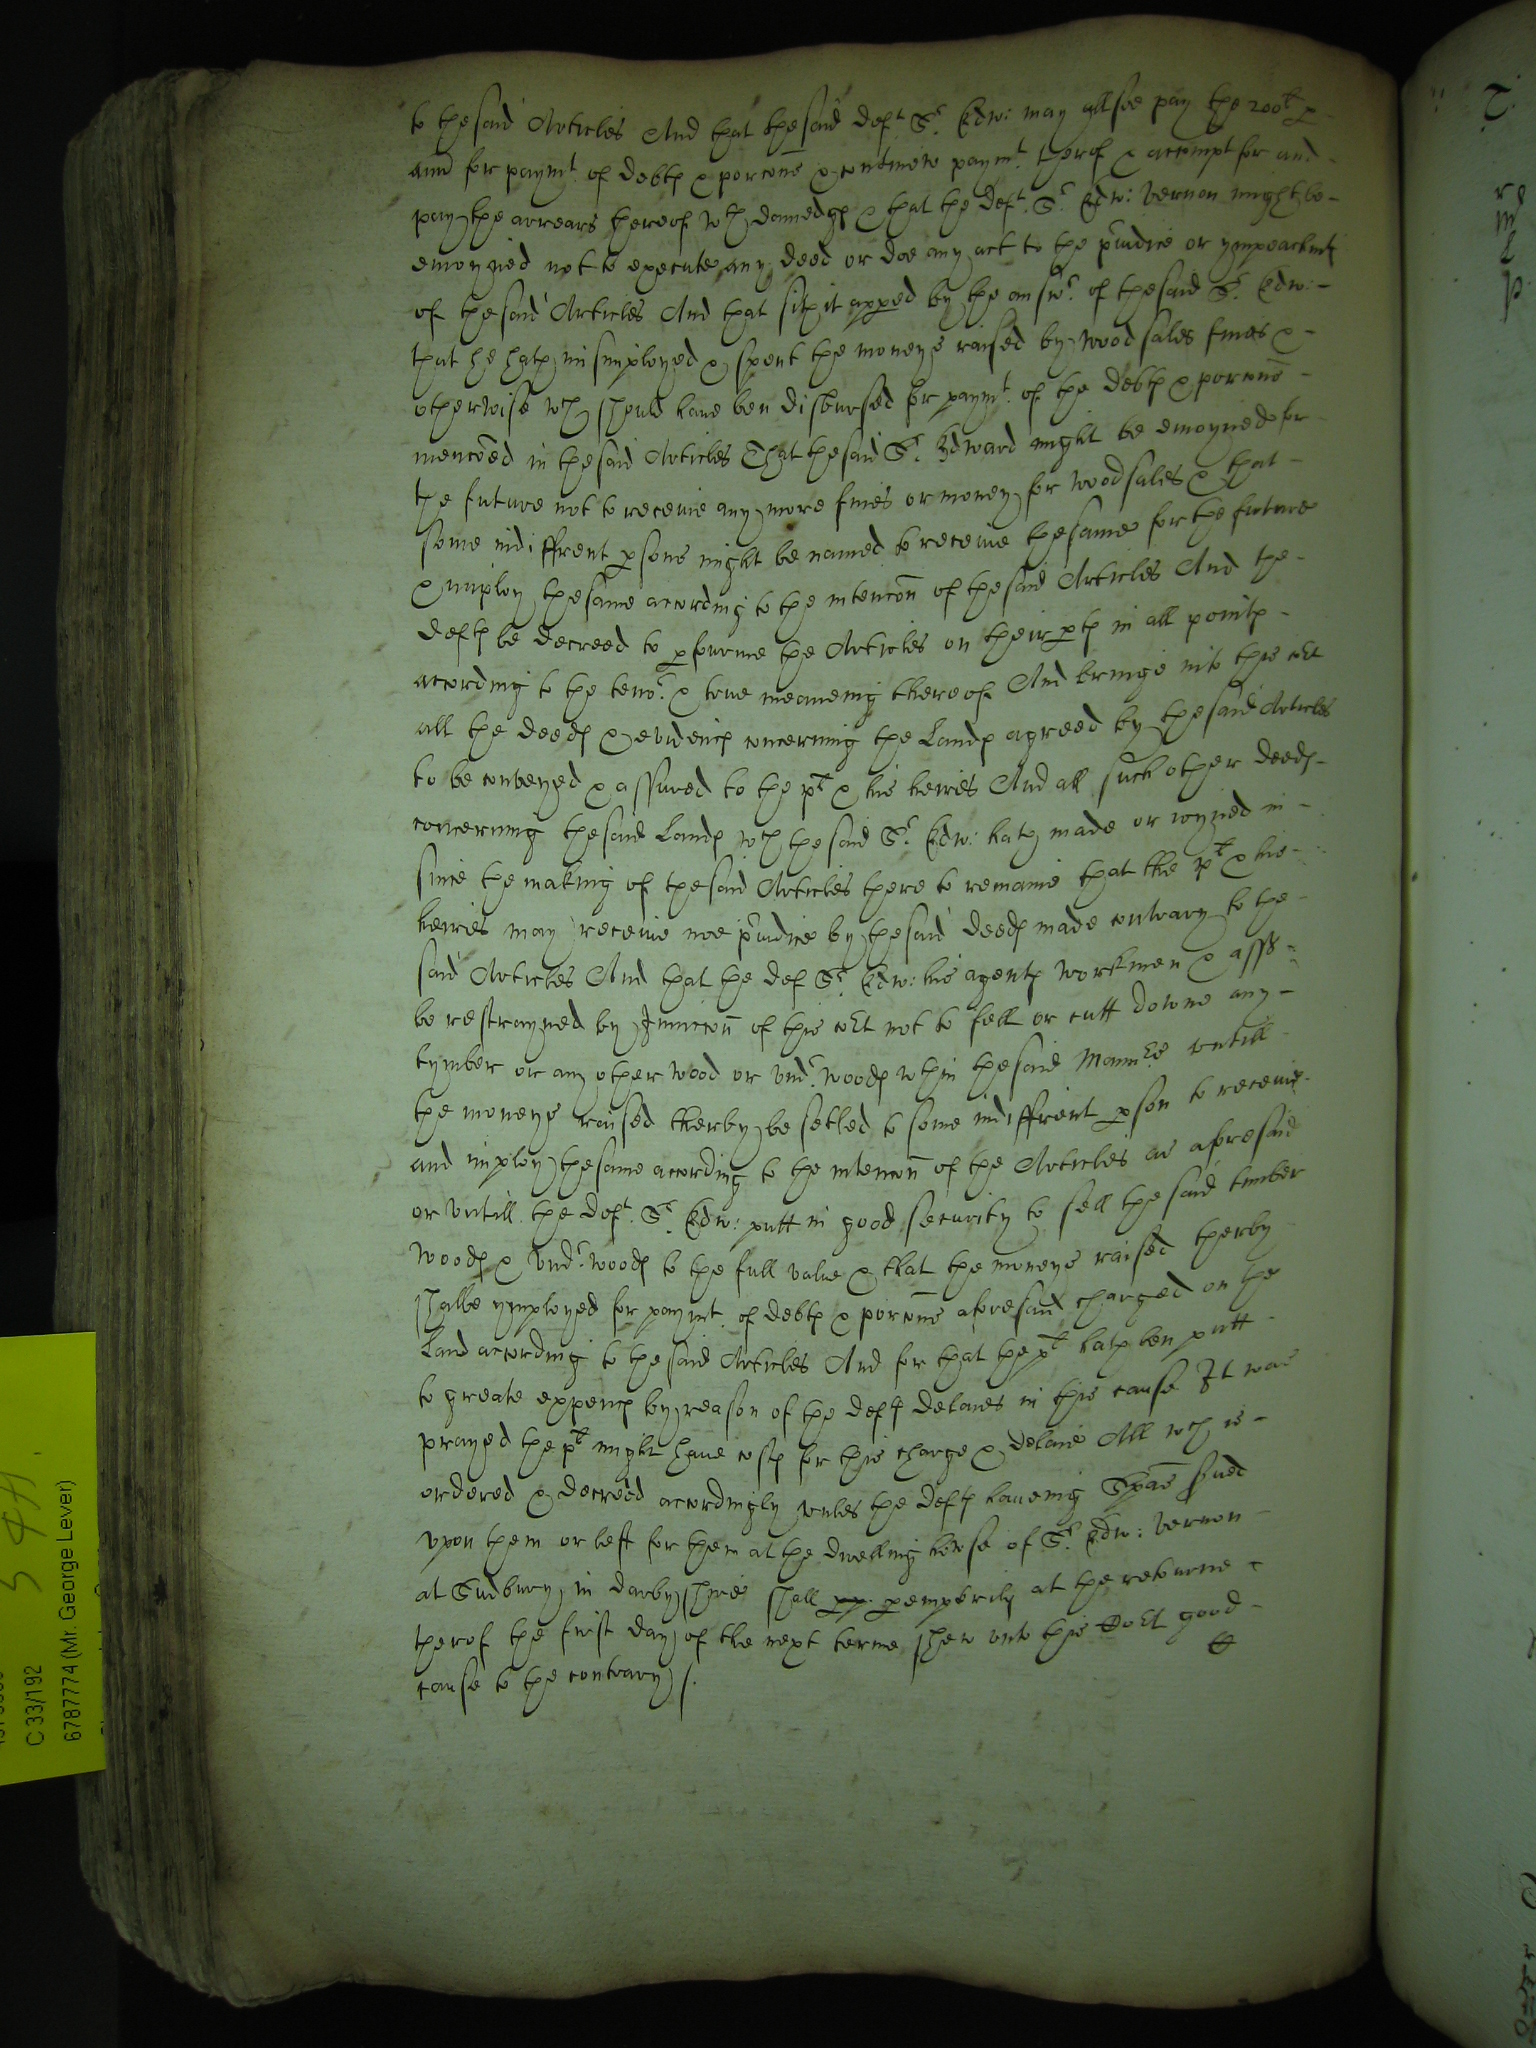 to the said Articles And that the said deft Sr Edw: may allsoe pay the 200li p
ann for paymt of debts & porcons & continew paymt therof & accompt for and
pay the arrears thereof wth damedgs & that the deft Sr Edw: Vernon might be
enioyned not to execute any deed or doe any act to the priudice or ympeachmt
of the said Articles And that sith it appeed by the answr of the said Sr Edw:
that he hath misimployed & spent the moneys raised by wood sales fines &
otherwise wch should have ben disbursed for paymt of the debts & porcons
menconed in the said Articles That the said Sr Edward might be enioyned for
the future not to receiue any more fines or money for wood sales & that
some indiffrent psons might be named to receiue the same for the future
& imploy the same according to the intencon of the said Articles And the
defts be decreed to pfourme the Articles on their pts in all points
according to the tenor & true meaneing thereof And bringe into this cort
all the deeds & evidencs concerning the Lands agreed by the said Articles
to be conveyed & assured to the plt & his heires And all such other deeds
concerning the said Lands wch the said Sr Edw: hath made or ioyned in
since the making of the said Articles there to remaine that the plt & his
heires may receiue noe priudice by the said deeds made contrary to the
said Articles And that the def Sr Edw: his agents workmen & asss
be restrayned by Iniuccon of this cort not to fell or cutt downe any
tymber or any other wood or vndr woods wthin the said Mannrs vntill
the moneys raised therby be setled to some indiffrent pson to receiue
and imploy the same according to the intencon of the Articles as aforesaid
or vntill the deft Sr Edw: putt in good security to sell the said timber
woods & vndr woods to the full value & that the moneys raised therby
shalbe ymployed for paymt of debts & porcons aforesaid charged on the
Land according to the said Articles And for that the plt hath ben putt
to greate expencs by reason of the defts delaies in this cause It was
prayed the plt might have costs for his charge & delaie All wch is
ordered & decreed accordingly vnles the defts haueing Spas serued
vpon them or left for them at the dwelling howse of Sr Edw: Vernon
at Sudbury in darbyshire shall pp pemptorily at the retourne
therof the first day of the next terme shew vnto this Cort good
cause to the contrary
C 33/192
6787774 (Mr. George Lever)